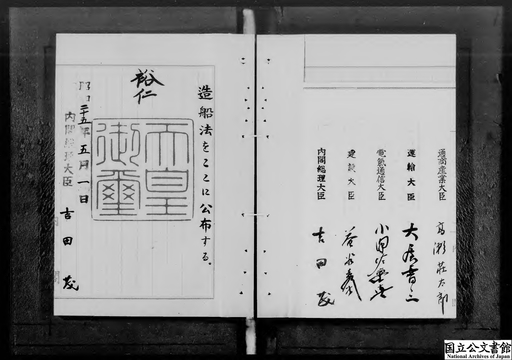 通商産業大臣 高瀬荘太郎
運輸大臣 大屋晋三
電氣通信大臣 小沢佐重喜
建設大臣 益谷秀次
内閣総理大臣 吉田茂
造船法をここに公布する。
裕仁
天皇御璽
昭和二十五年五月一日
内閣総理大臣 吉田茂
国立公文書館
National Archives of Japan